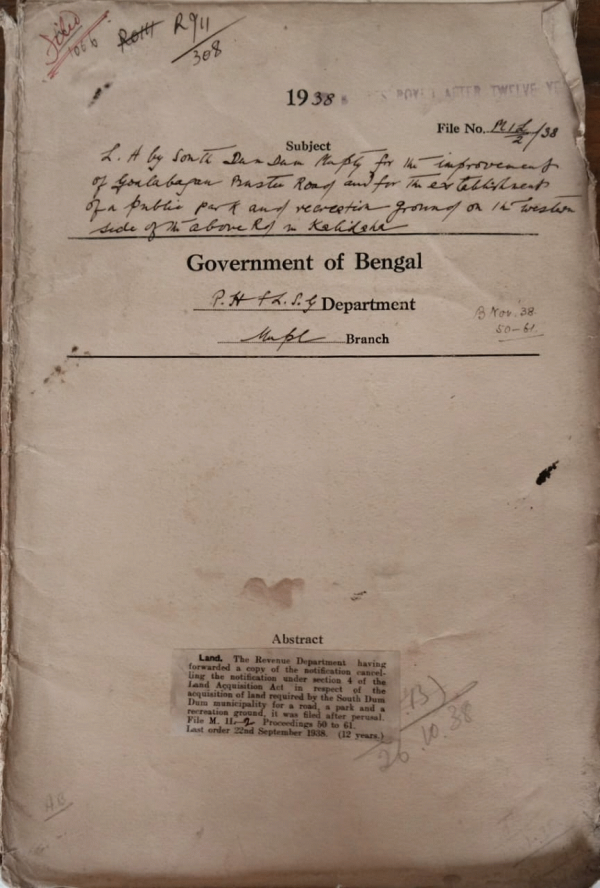 Filed
R911
308
1938
AFTER TWELVE YE
File No. M1L/2/38
Subject
L. A by South Dum Dum Mupty for the improvement
of Goalabagan Bustee Road and for the establishment
of a public park and recreation ground on the western
side of the above Rd in Kalidaha
Government of Bengal
P. H & L. S. G Department
Mupl Branch
B Nov. 38
50-61
Abstract
Land. The Revenue Department having
forwarded a copy of the notification cancel-
ling the notification under section 4 of the
Land Acquisition Act in respect of the
acquisition of land required by the South Dum
Dum municipality for a road, a park and a
recreation ground, it was filed after perusal.
File M. 1L-2 Proceedings 50 to 61.
Last order 22nd September 1938. (12 years.)
26.10.38